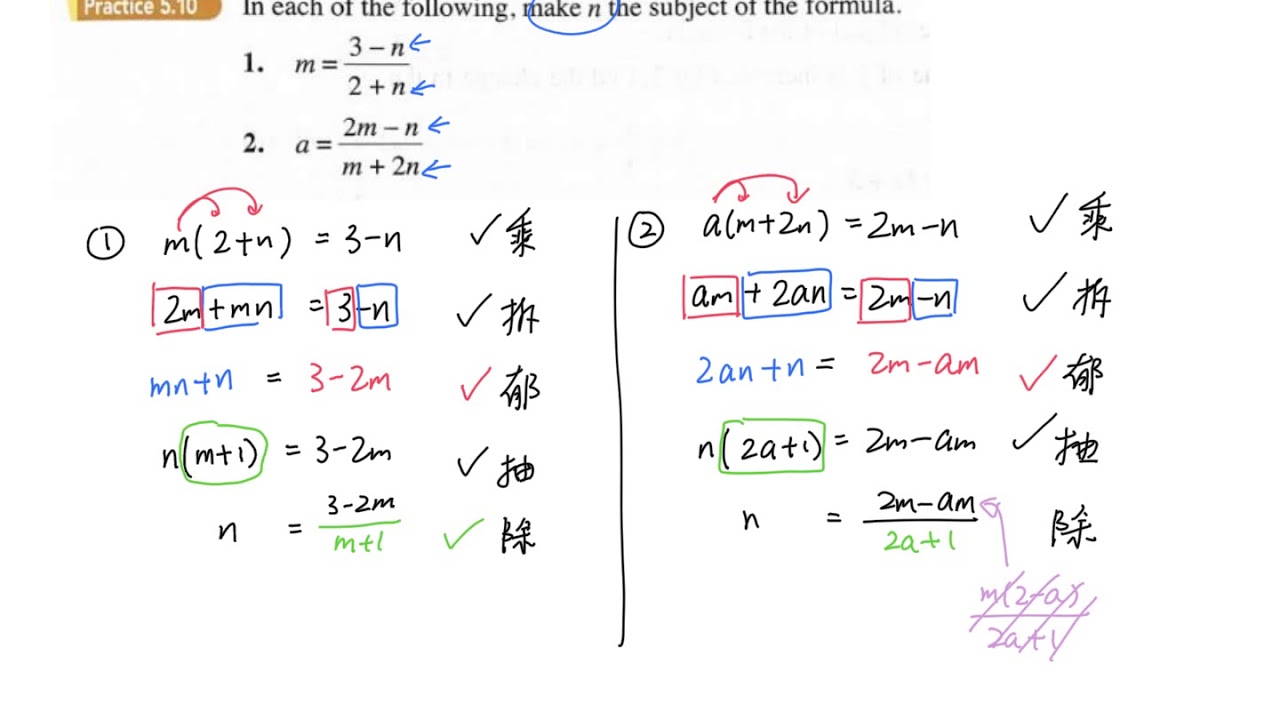 Practice 5.10 In each of the following, make n the subject of the formula.
1. m = (3 − n)/(2 + n)
2. a = (2m − n)/(m + 2n)
① m(2+n) = 3−n ✓乘
2m+mn = 3−n ✓拆
mn+n = 3−2m ✓郁
n(m+1) = 3−2m ✓抽
n = (3−2m)/(m+1) ✓除
② a(m+2n) = 2m−n ✓乘
am + 2an = 2m−n ✓拆
2an+n = 2m−am ✓郁
n(2a+1) = 2m−am ✓抽
n = (2m−am)/(2a+1) 除
m(2−a)/(2a+1)